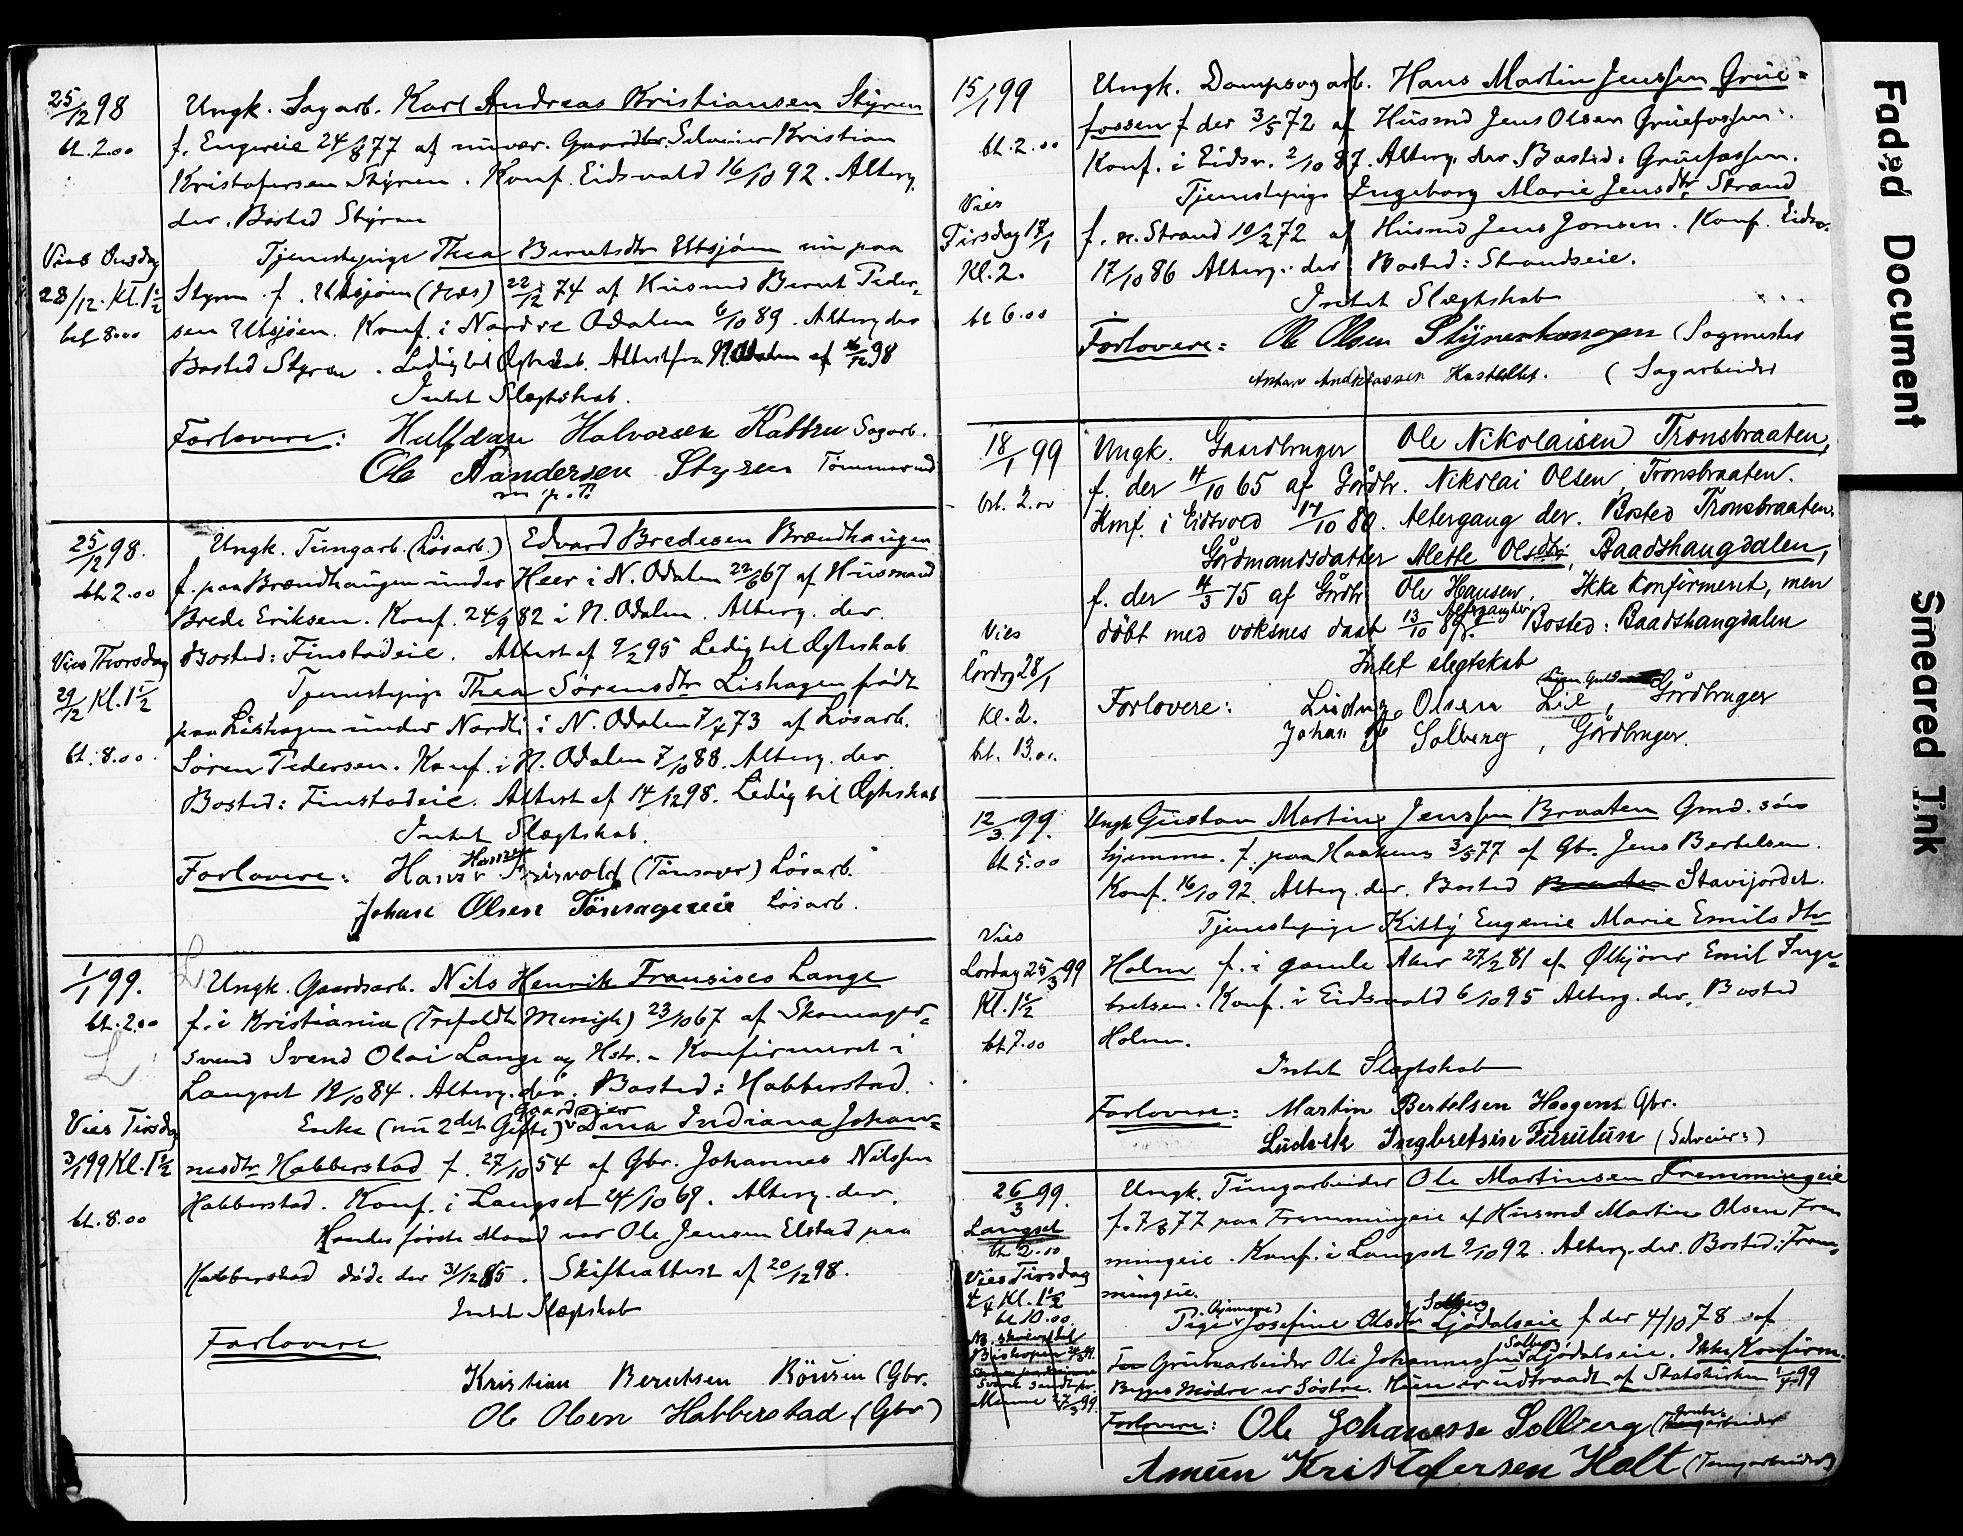 25/12 98
bt. 2.00
Ungk. Sagarb. Karl Andreas Kristiansen Styren
f. Engereie 24/8 77 af nuvær. Gaardbr. Selveier Kristian
Kristofersen Styren. Konf. Eidsvold 16/10 92. Alterg.
der. Bosted Styren
Vies Onsdag
28/12. Kl. 1½
bet 8.00
Tjenestepige Thea Berntsdtr Utsjøen nu paa
Styren f. Utsjøen (Næs) 22/12 74 af Husmd Bernt Peder-
sen Utsjøen. Konf. i Nordre Odalen 6/10 89. Alterg. der
Bosted Styren. Ledig til Ægteskab. Attest fra N. Odalen af 16/12 98
Intet Slægtskab.
Forlovere: Halfdan Halvorsen Sagarb.
Ole Aandersen Styren Tømmermd
m. p. P.
25/12 98.
bt. 2.00
Ungk. Tungarb. (Løsarb.) Edvard Bredesen Brændhaugen
f. paa Brændhaugen under Heer i N. Odalen 22/6 67 af Husmand
Brede Eriksen. Konf. 24/9 82 i N. Odalen. Alterg. der.
Bosted: Finstadeie. Attest af 9/2 95 Ledig til Ægteskab
Vies Thorsdag
29/12 Kl. 1½
bt. 8.00.
Tjenestepige Thea Sørensdtr Lishagen født
paa Lishagen under Nordli i N. Odalen 7/7 73 af Løsarb.
Søren Pedersen. Konf. i N. Odalen 7/10 88. Alterg. der.
Bosted: Finstadeie. Attest af 14/12 98. Ledig til Ægteskab
Intet Slægtskab.
Forlovere: Hans Hansen (Tønsager) Løsarb.
Johan Olsen Tönsagereie Løsarb.
1/1 99.
bt. 2.00
L
Ungk. Gaardsarb. Nils Henrik Fransisco Lange
f. i Kristiania (Trefoldh. Menigh) 23/10 67 af Skomager-
svend Svend Olai Lange og Hstr. - Konfirmeret i
Langset 19/10 84. Alterg. der. Bosted: Habberstad.
Vies Tirsdag
3/1 99 Kl. 1½
bt. 8.00
Enke (nu 2det Gifte) Gaardeier Dina Indiana Johan-
nesdtr Habberstad f. 27/10 54 af Gbr. Johannes Nilssen
Habberstad. Konf. i Langset 24/10 69. Alterg. der.
Hendes første Mand var Ole Jensen Elstad paa
Habberstad døde der 31/12 85. Skifteattest af 20/12 98.
Intet Slægtskab
Forlovere
Kristian Berntsen Rönsen (Gbr.
Ole Olsen Habberstad (Gbr)
15/1 99
bt. 2.00
Ungk. Dampsagarb. Hans Martin Jenssen Grue-
fossen f der 3/5 72 af Husmd Jens Olsen Gruefossen.
Konf. i Eidsv. 2/10 87. Alterg. der. Bosted: Gruefossen.
Vies
Tirsdag 17/1
Kl. 2.
bt 6.00
Tjenestepige Ingeborg Marie Jensdtr Strand
f. n. Strand 10/2 72 af Husmd Jens Jonsen. Konf. Eidsv.
17/10 86 Alterg. der Bosted: Strandseie.
Intet Slægtskab
Forlovere: Ole Olsen Stynerhaugen (Sagmester
Anton Andreassen Kastellet. (Sagarbeider
18/1 99
bt. 2.00
Ungk. Gaardbruger Ole Nikolaisen Tronsbraaten,
f. der 4/10 65 af Gårdbr. Nikolai Olsen, Tronsbraaten.
Konf. i Eidsvold 17/10 80. Altergang der. Bosted Tronsbraaten.
Gårdmandsdatter Mette Olsdtr, Baadshaugdalen,
f. der 4/3 75 af Gårdbr Ole Hansen. Ikke konfirmeret, men
döbt med voksnes daab 13/10 89. Altergang der Bosted: Baadshaugdalen
Vies
lördag 28/1
Kl. 2.
bt. 13.00.
Intet slegtskab
Forlovere: Ludvig Olsen Lie, Gårdbruger
Johan Solberg, Gårdbruger.
12/3 99.
bt 5.00
Ungk Gustav Martin Jenssen Braaten Gmd. søn
hjemme. f. paa Haakens 3/5 77 af Gbr. Jens Bertelsen.
Konf. 16/10 92. Alterg. der. Bosted Braaten Stavijordet.
Vies
Lørdag 25/3 99
Kl. 1½
bt 7.00
Tjenestepige Kitty Eugenie Marie Emilsdtr
Holm f. i gamle Aker 27/2 81 af Ølkjører Emil Inge-
bretsen. Konf. i Eidsvold 6/10 95 Alterg. der. Bosted
Holm.
Intet Slægtskab
Forlovere: Martin Bertelsen Haagens Gbr.
Ludvik Ingbretsen Furulun (Selveier)
26/3 99.
Langset
bt 2.00
Ungk. Tungarbeider Ole Martinsen Fremmingeie
f. 7/8 77 paa Fremmingeie af Husmd Martin Olsen Frem
mingeie. Konf. i Langset 9/10 92. Alterg. der. Bosted: Frem-
mingeie.
Vies Tirsdag
4/4 Kl. 1½
bt 10.00.
Pige (hjemme) Josefine Olsdtr Solberg Ljødalseie f der 4/10 78 af
Grubearbeider Ole Johannessen Solberg Ljødalseie. Ikke Konfirm.
Begges Mødre er Søstre. Hun er udtraadt af Statskirken 99
Forlovere: Ole Johanesse Solberg (Grubearbeider
Amun Kristofersen Holt (Tungarbeider)
Faded Document
Smeared Ink